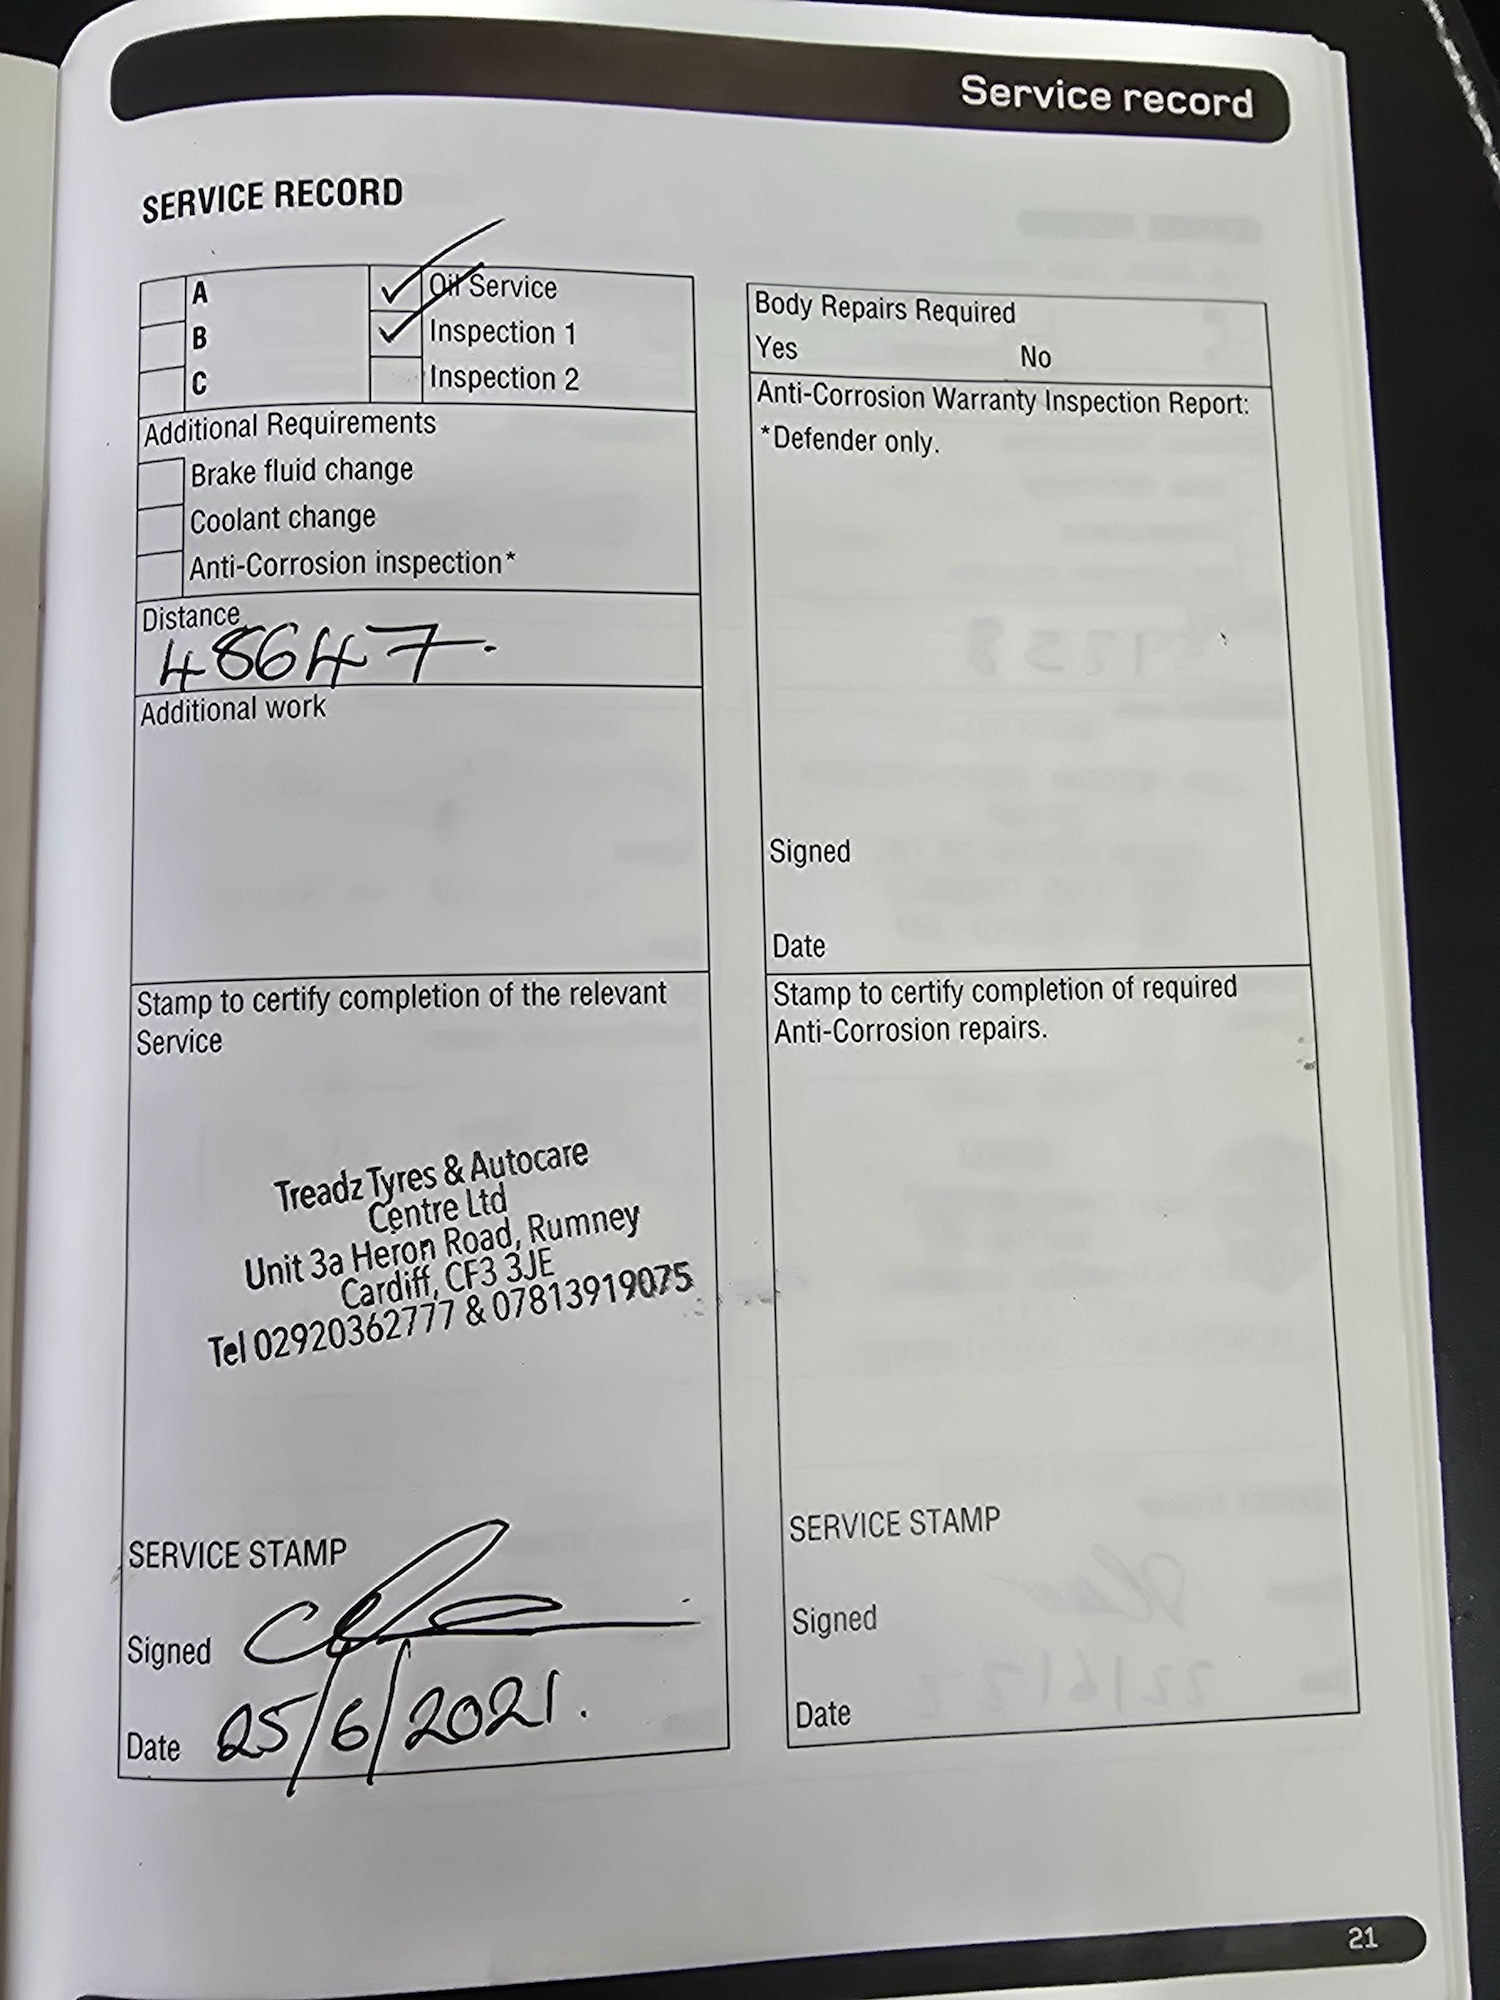 Service record
SERVICE RECORD
A
B
C
Oil Service
Inspection 1
Inspection 2
Additional Requirements
Brake fluid change
Coolant change
Anti-Corrosion inspection*
Distance
48647
Additional work
Stamp to certify completion of the relevant
Service
Treadz Tyres & Autocare
Centre Ltd
Unit 3a Heron Road, Rumney
Cardiff, CF3 3JE
Tel 02920362777 & 07813919075
SERVICE STAMP
Signed
Date 25/6/2021.
Body Repairs Required
Yes No
Anti-Corrosion Warranty Inspection Report:
*Defender only.
Signed
Date
Stamp to certify completion of required
Anti-Corrosion repairs.
SERVICE STAMP
Signed
Date
21